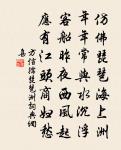 仿佛琵琶海上洲
年年常與水沉浮
客船昨夜西風起
應有江頭商婦愁
方信孺琵琶洲詞典網
集